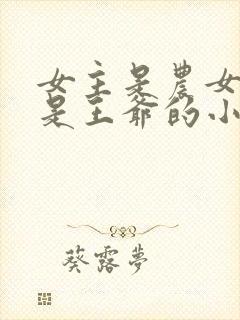 女主是農女
是王爺的小
葵露夢